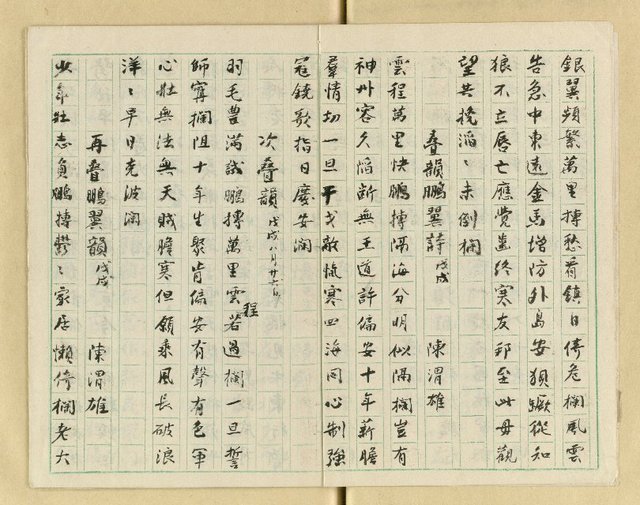 銀翼頻繁萬里摶愁看鎮日倚危欄風雲
告急中東遠金馬增防外島安狽蹶從知
狼不立唇亡應覺齒終寒友邦至此毋觀
望共挽滔〻未倒欄
疊韻鵬翼詩戊戌 陳渭雄
雲程萬里快鵬摶隔海分明似隔欄豈有
神州容久陷斷無王道許偏安十年薪膽
羣情切一旦干戈敵愾寒四海同心制強
寇銃歌指日慶安瀾
次疊韻戊戌八月廿六日
羽毛豐滿試鵬摶萬里雲程若過欄一旦誓
師寧擱阻十年生聚肯偏安有聲有色軍
心壯無法無天賊膽寒但願乘風長破浪
洋〻早日克波瀾
再疊鵬翼韻戊戌 陳渭雄
少年壯志負鵬摶鬱〻家居懶倚欄老大